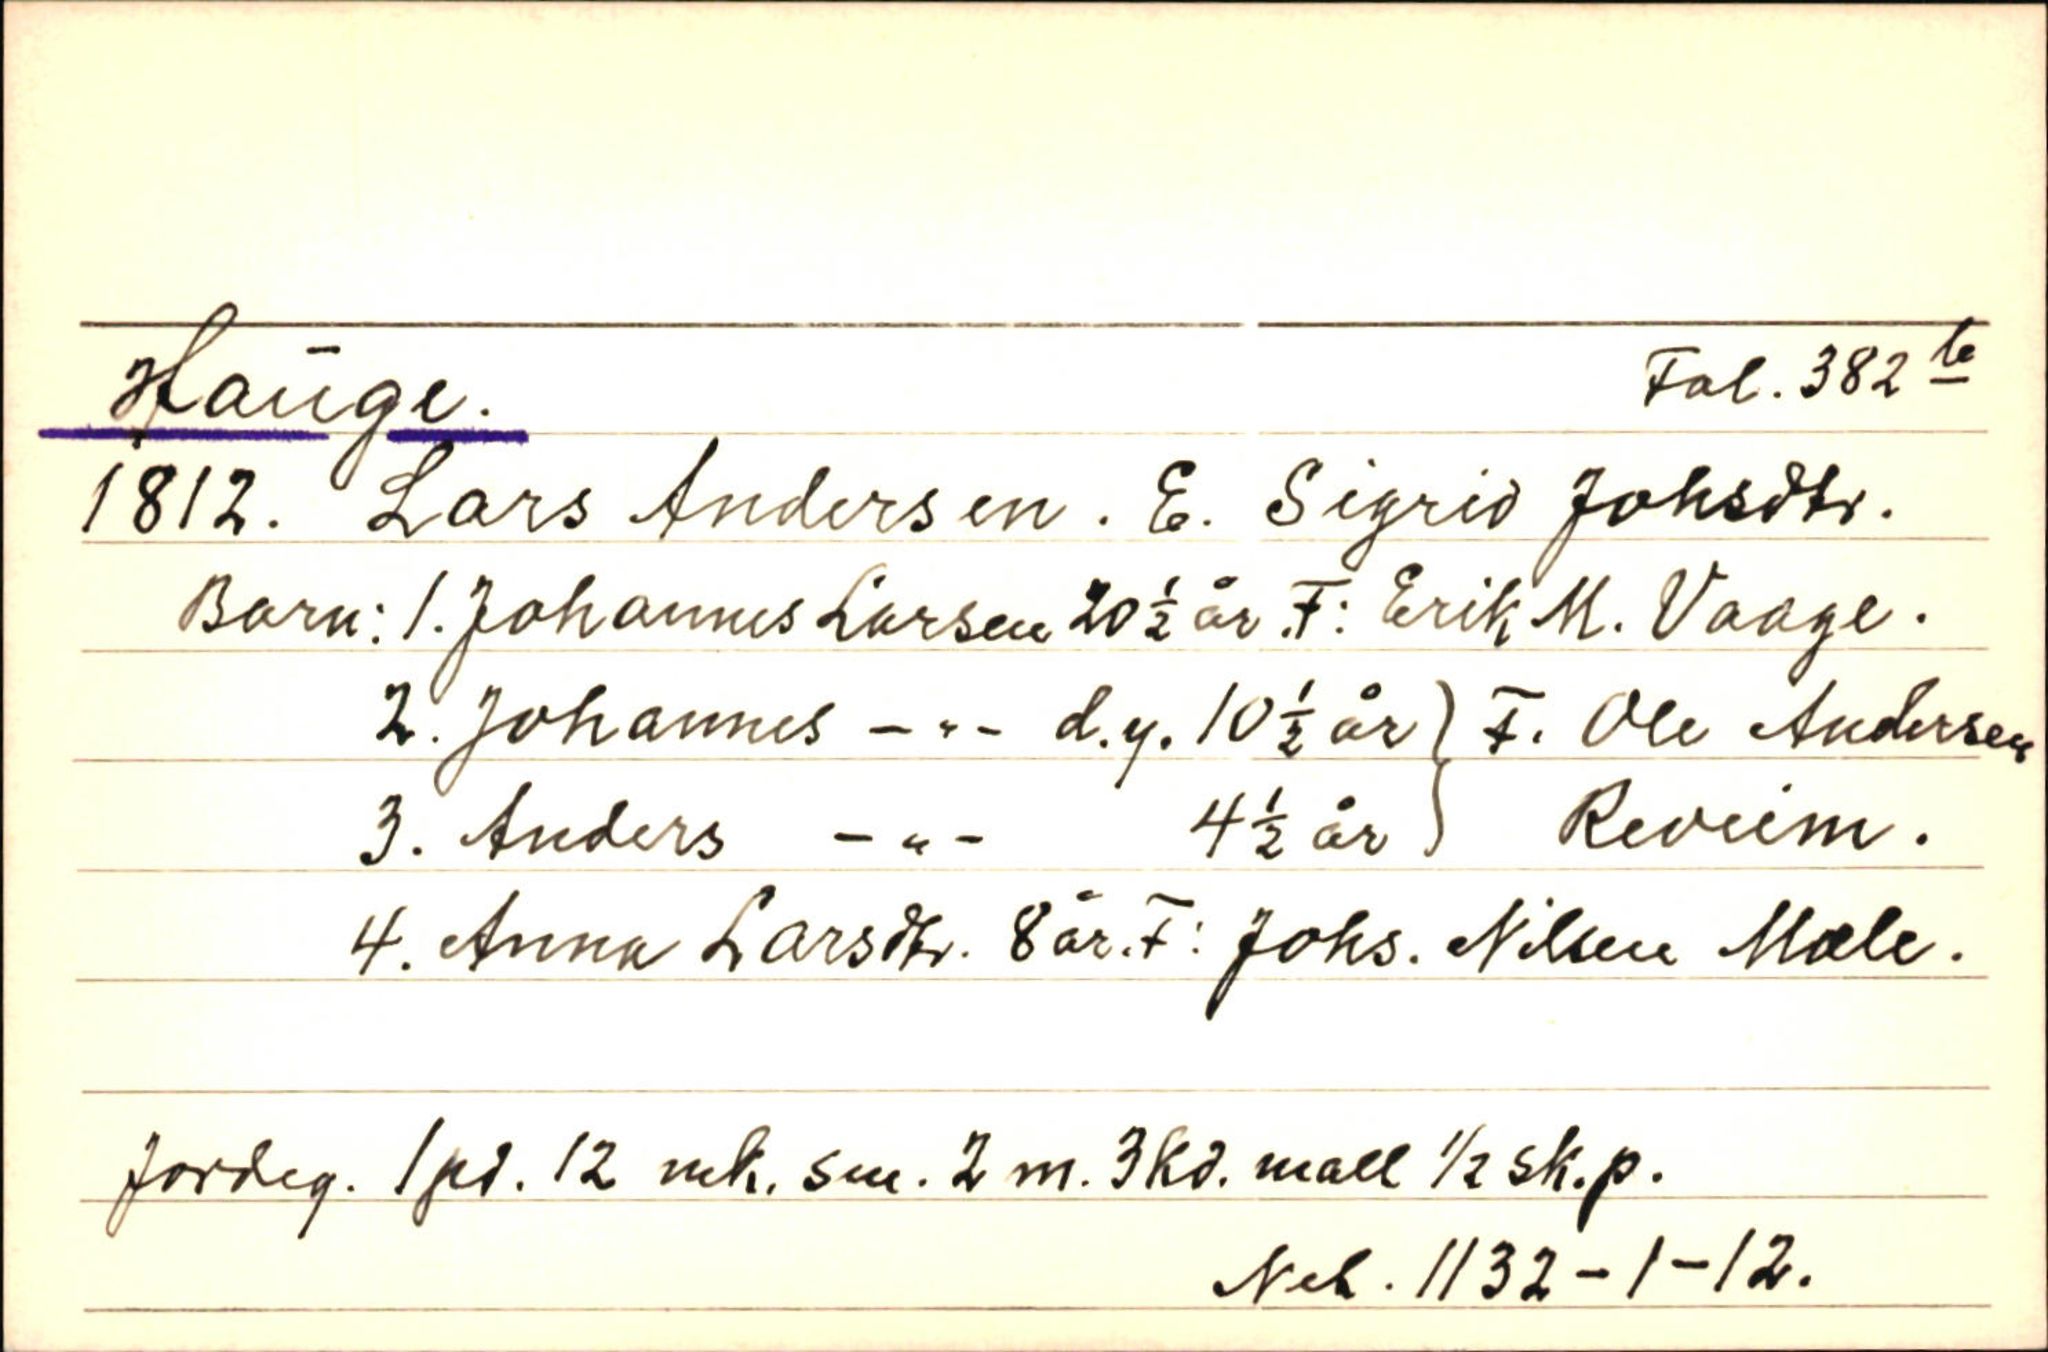 Hauge. Fol. 382 b
1812. Lars Andersen. E. Sigrid Johsdtr.
Barn: 1. Johannes Larsen 20½ år. F: Erik M. Vaage.
2. Johannes -"- d.y. 10½ år } F. Ole Andersen
3. Anders -"- 4½ år } Reveim.
4. Anna Larsdtr. 8 år. F: Johs. Nilsen Mæle.
Jordeg. 1 pd. 12 mk. sm. 2 m. 3 kd. mall ½ sk.p.
Net. 1132-1-12.